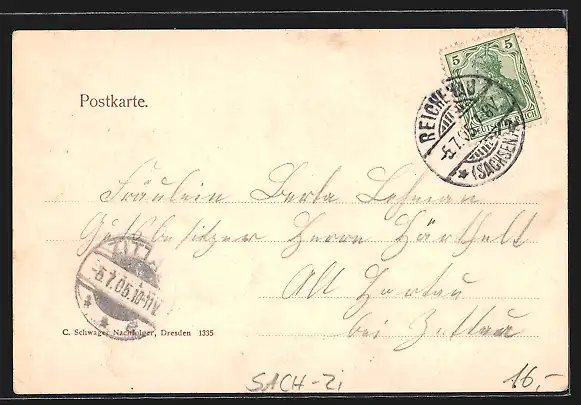 Postkarte.
5 5
DEUTSCHES REICH
REICHENAU
5.7.05
(SACHSEN)
Fräulein Berta Lehman
Gutsbesitzer Herrn Härthelt
Alt Hartau
bei Zittau
ZITTAU
-5.7.05.10-11V.
C. Schwager Nachfolger, Dresden 1335
SACH-Zi
16,-